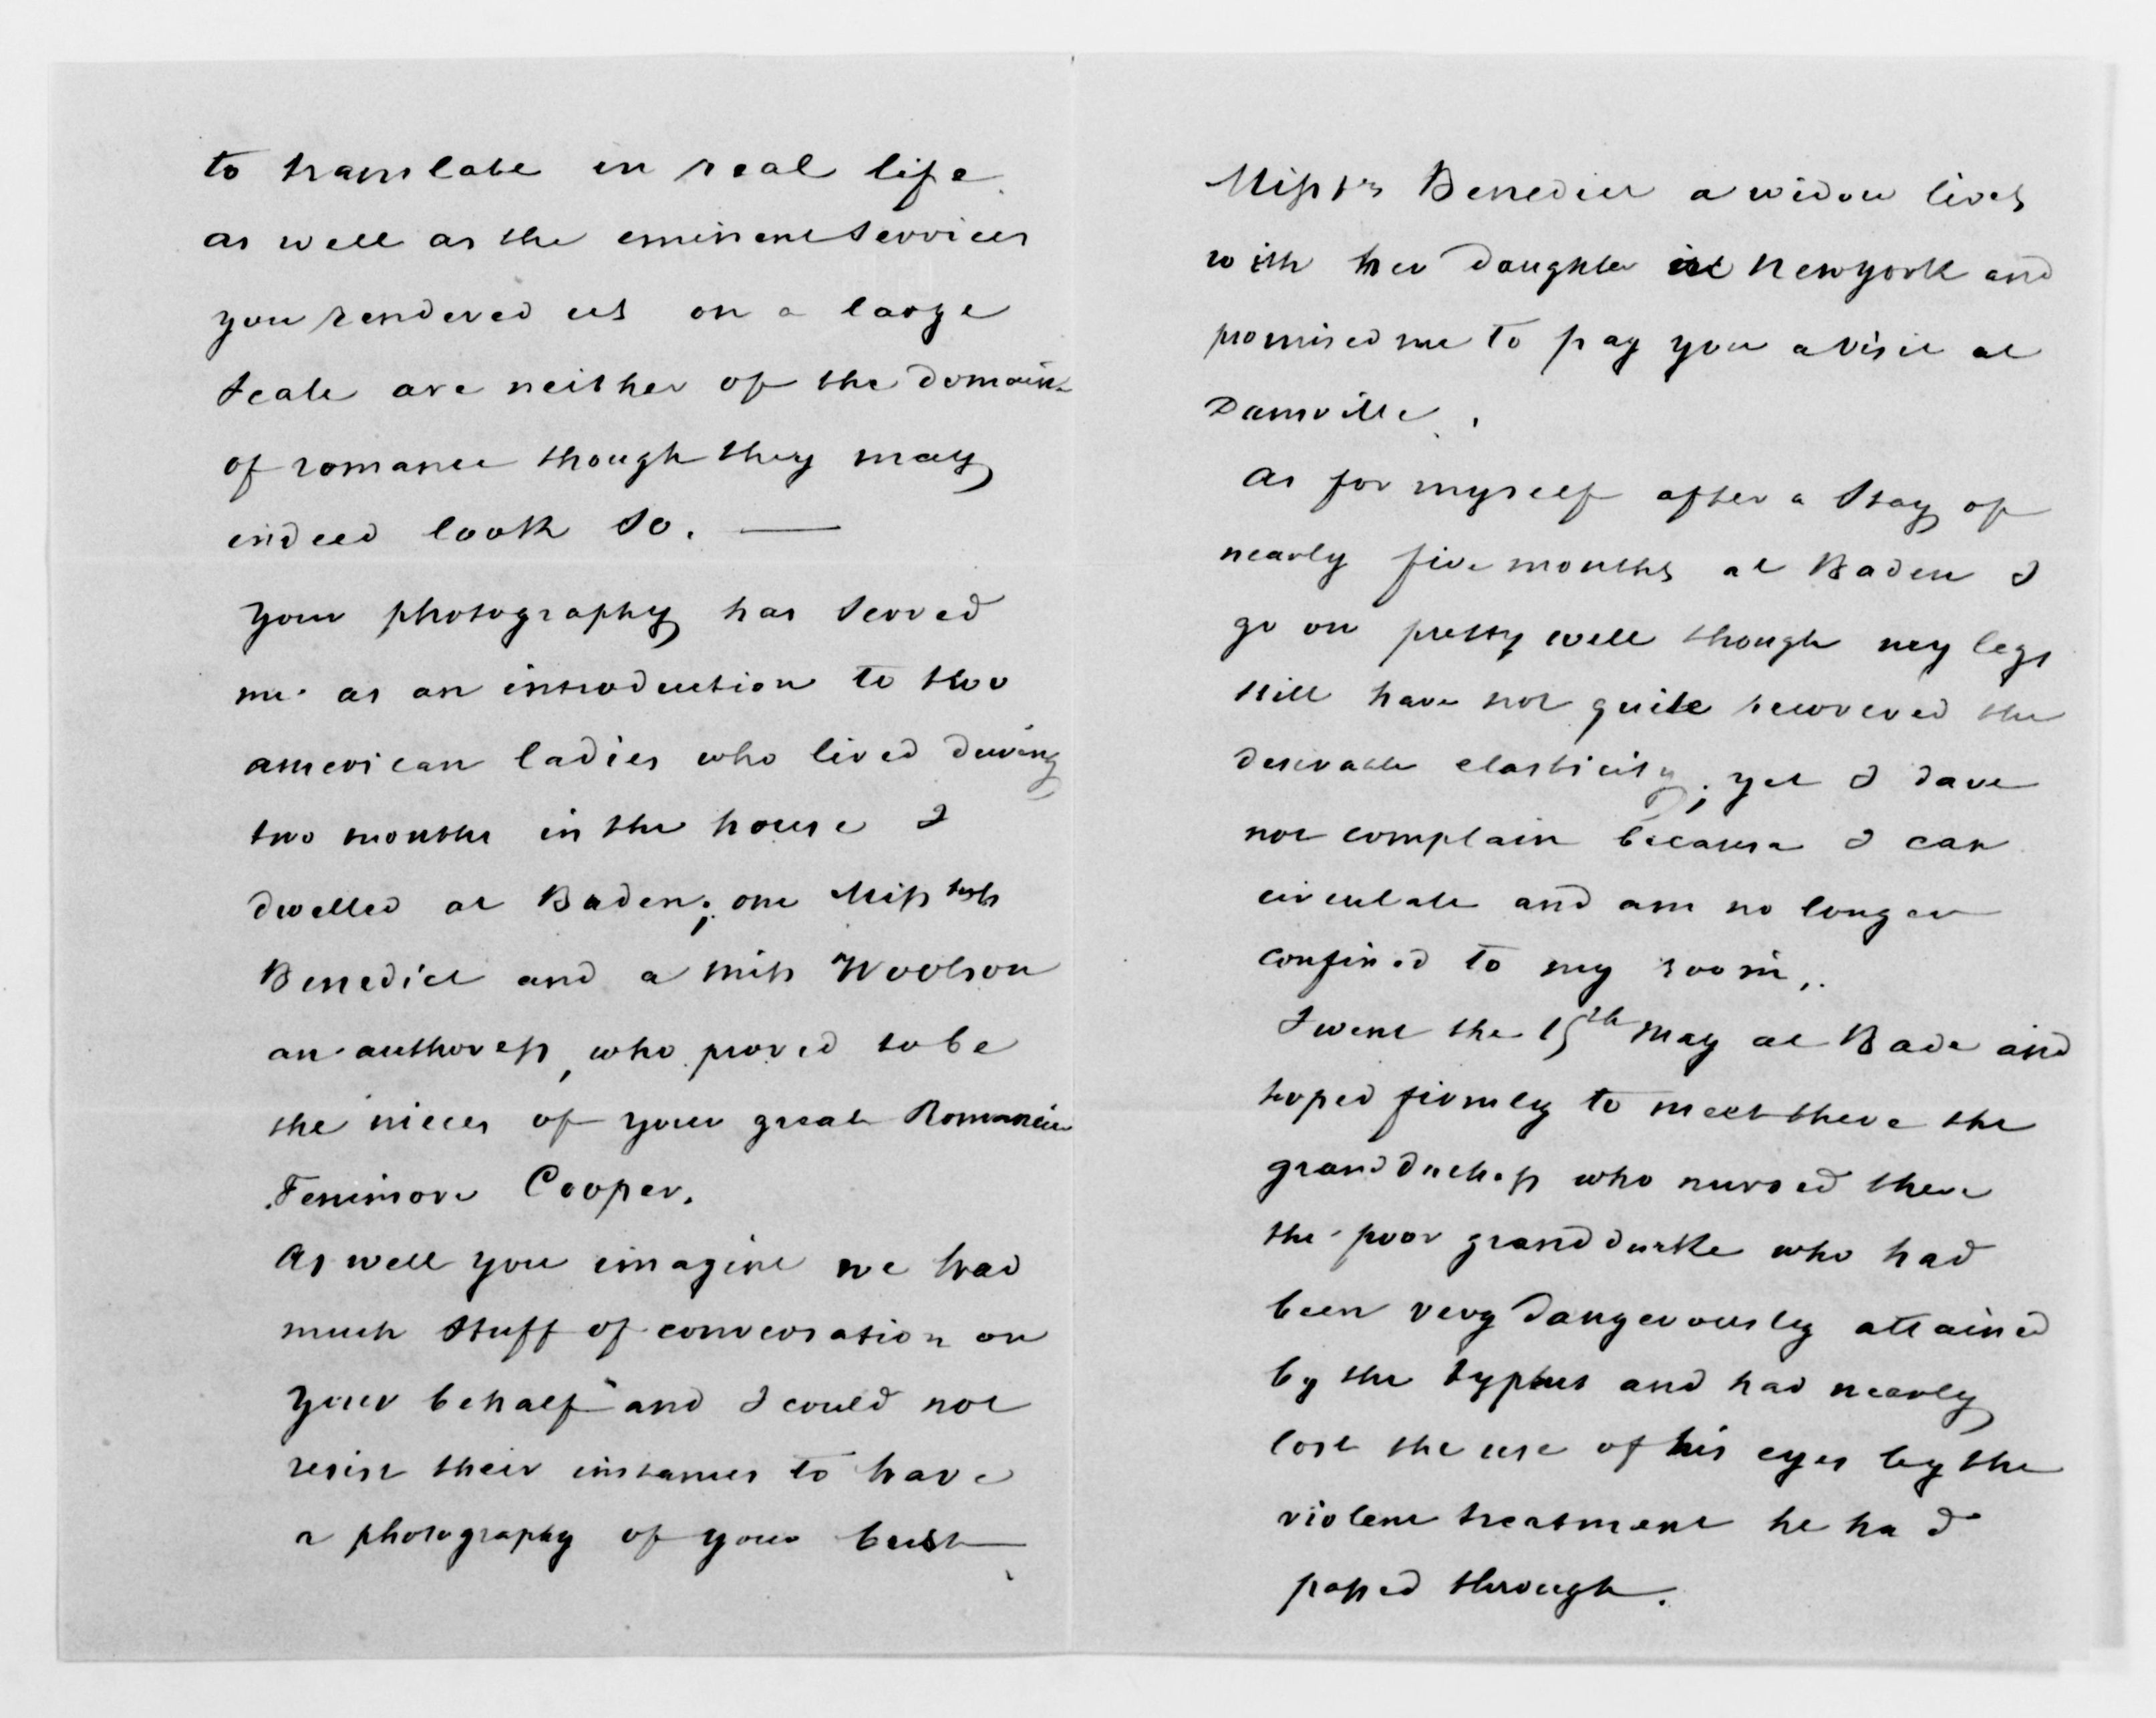 to translate in real life
as well as the eminent services
you rendered us on a large
scale are neither of the domain
of romance though they may
indeed look so. —
your photography has served
me as an introduction to two
american ladies who lived during
two months in the house I
dwelled at Baden; one
Benedict and a Miss Woolson
an authoress, who proved to be
the nieces of your great Romancier
Fenimore Cooper.
As well you imagine we had
much stuff of conversation on
your behalf and I could not
resist their instances to have
a photography of your bust
Benedict a widow lives
with her daughter in Newyork and
promised me to pay you a visit at
Dansville.
As for myself after a stay of
nearly five months at Baden I
go on pretty well though my legs
still have not quite recovered the
desirable elasticity; yet I dare
not complain because I can
circulate and am no longer
confined to my room,.
I went the 15th May at Bade and
hoped firmly to meet there the
grandduchess who nursed there
the poor grandduke who had
been very dangerously attained
by the typhus and had nearly
lost the use of his eyes by the
violent treatment he had
passed through.